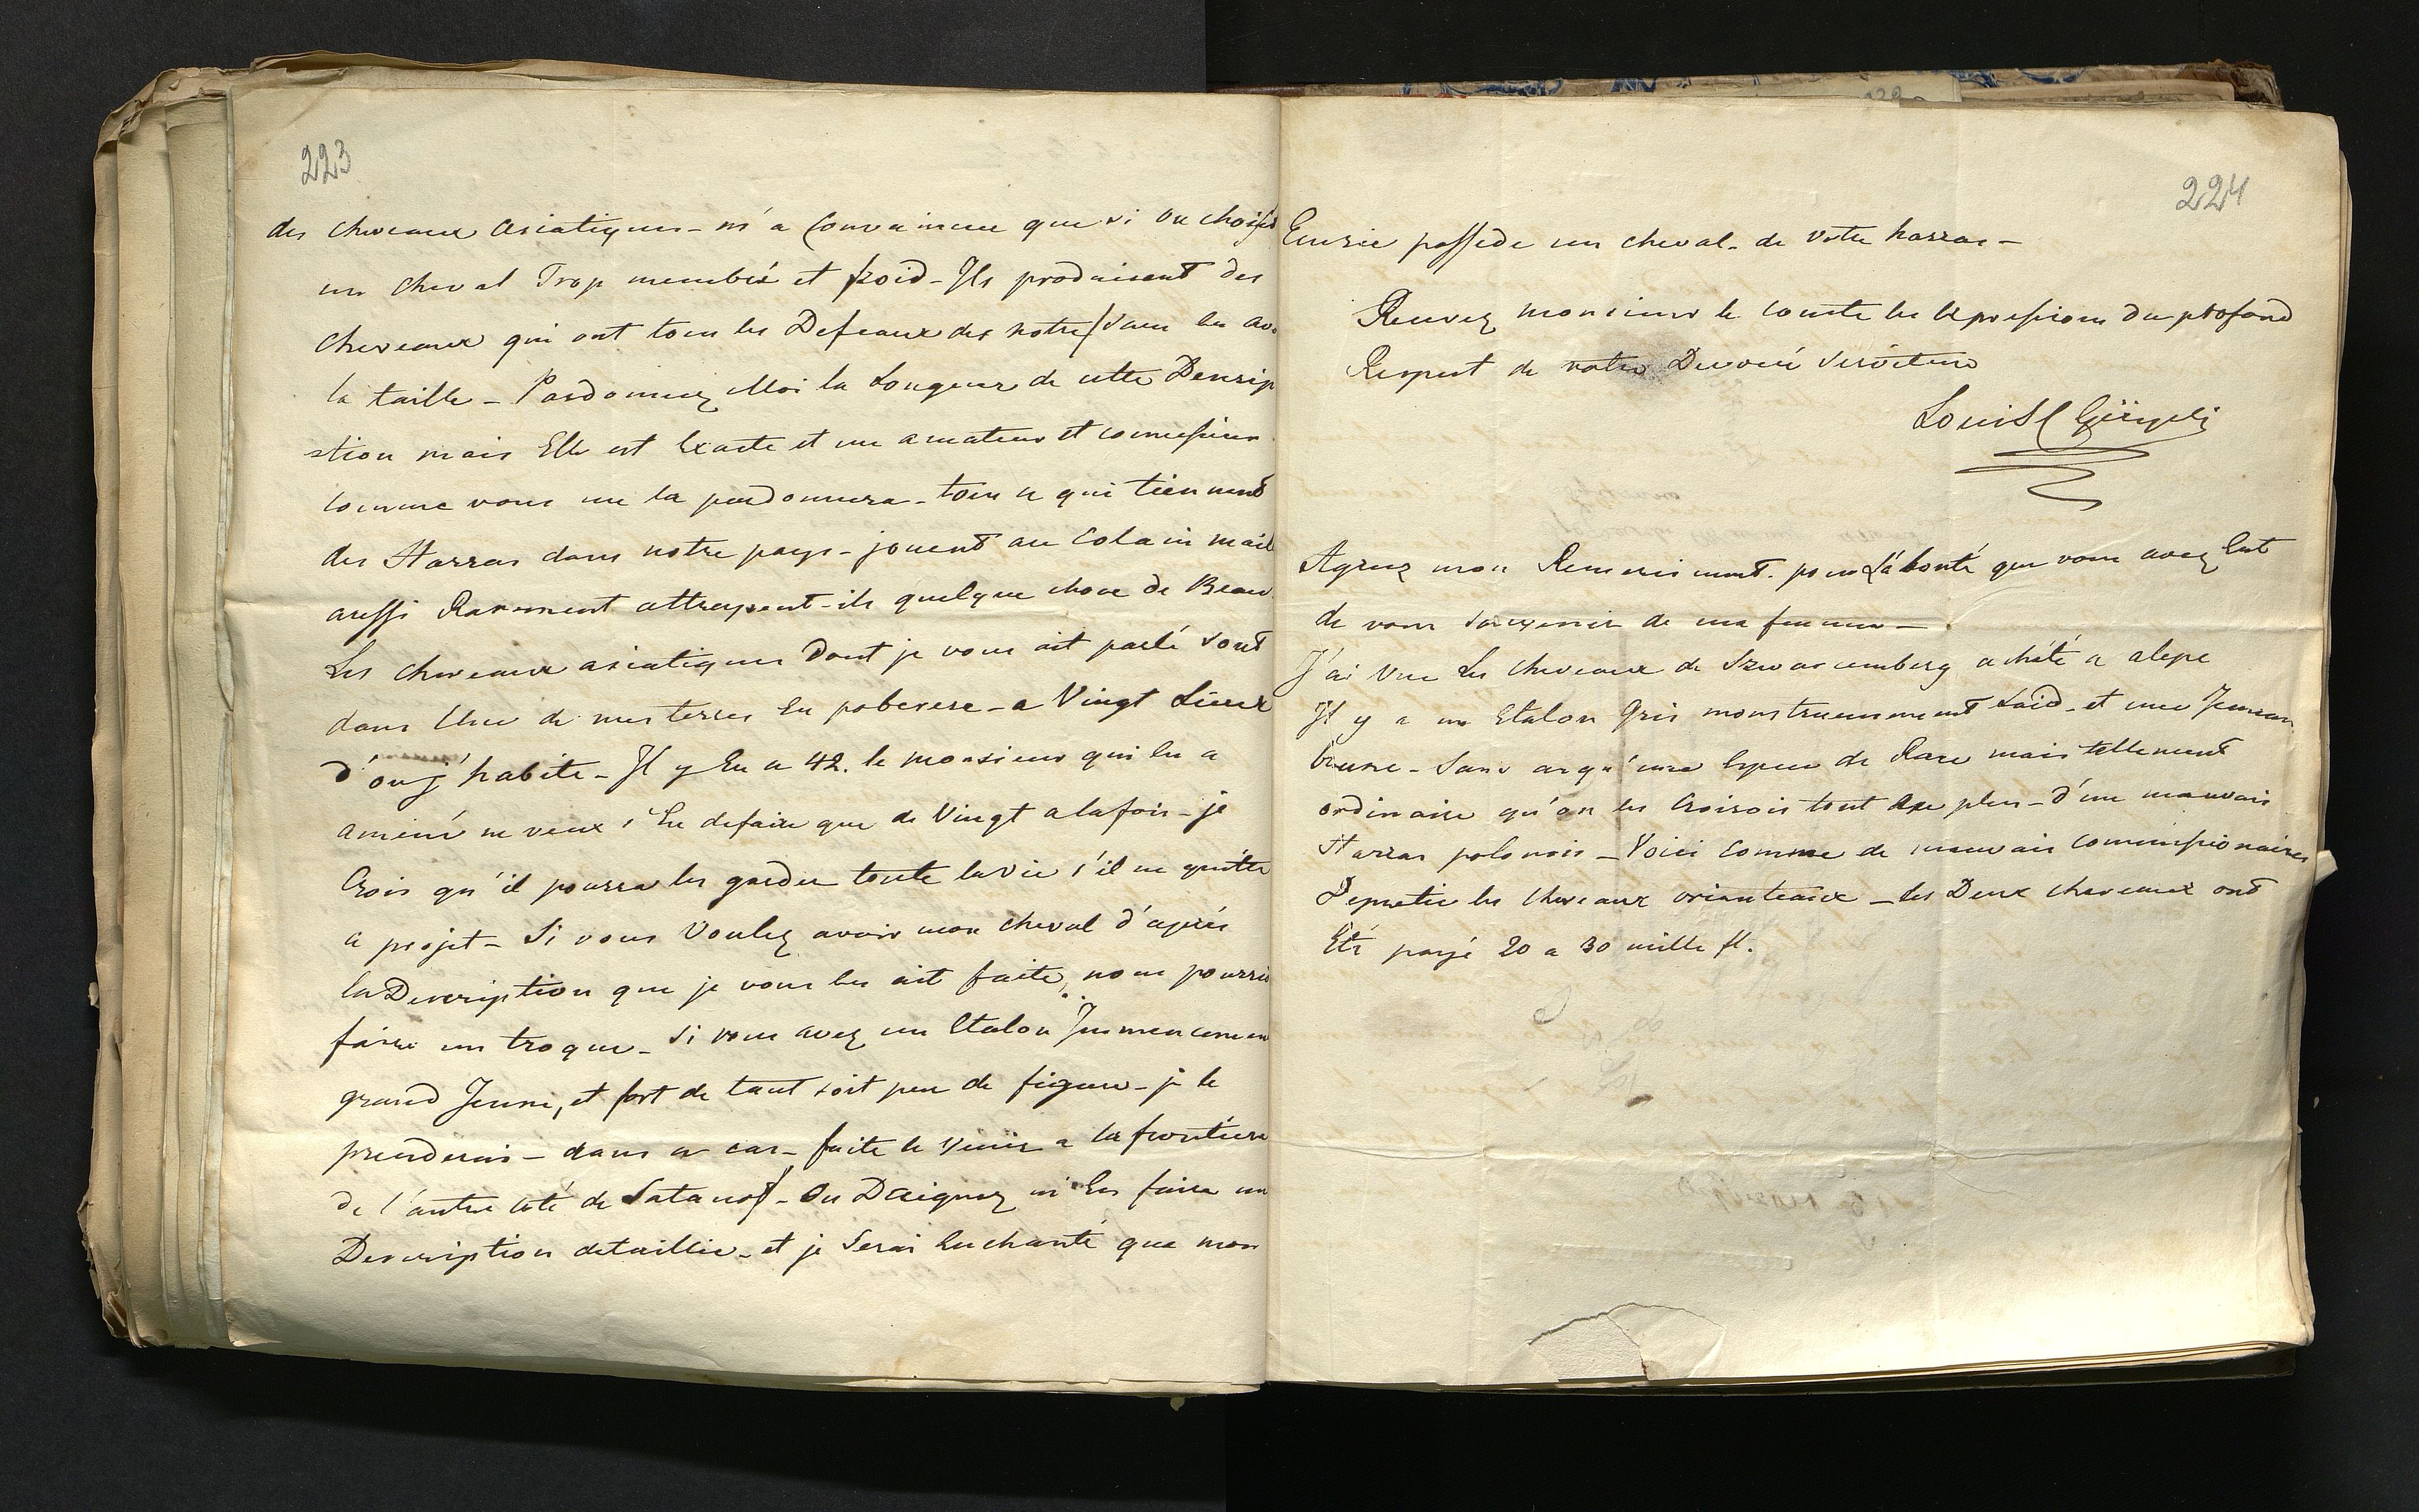 223
des cheveaux asiatiques - m'a Convaincue que si on choisit
un cheval Trop membré et froid - Ils produisent des
cheveaux qui ont tous les Defeaux des notre sans en av
la taille - Pardonnez Moi la Longeur de cette Descrip
stion mais Elle est Exacte et un amateur et connesseur
comme vous me la pardonnera - tous ce qui tiennent
des Harras dans notre pays - jouent au Colain mail
aussi Rarement attrappent-ils quelque chose de Beau
Les cheveaux asiatiques Dont je vous ait parlé sont
dans Une de mes terres En poberese - a Vingt Lieux
d'ou j'habite - Il y En a 42. le monsieur qui les a
aminé ne veux s'En defaire que de Vingt a la fois - je
Crois qu'il pourra les garder toute la vie s'il ne quitte
ce projet - Si vous Voulez avoir mon cheval d'après
la Description que je vous en ait faite, nous pourrio
faire un troque - Si vous avez un Etalon
grand Jeune, et fort de tant soit peu de figure - je le
prenderais - dans ce cas - faite le venir a la frontiere
de l'autre coté de Satanof - Ou Daignez m'En faire un
Description detaillie - et je Serai Enchanté que mon
224
Ecurie possede un cheval - de votre harras -
Recevez monsieur le comte les Expressions du profond
Respect de votre Devoué Serviteur
Louis
Agreez mon Remerciment. pour La bonté que vous avez Eut
de vous souvenir de ma femme -
J'ai vue Les Cheveaux de Szwarcemberg achété a alepe
Il y a un Etalon Gris monstrueusement Laid - et une Jument
brune - Sans cu qu'une Espece de Race mais tellement
ordinaire qu'on les Croirois tout au plus - d'un mauvais
Harras polonois - Voici comme de mauvais commissionaires
Depretie les cheveaux orianteaux - les Deux cheveaux ont
Eté payé 20 a 30 mille fl.